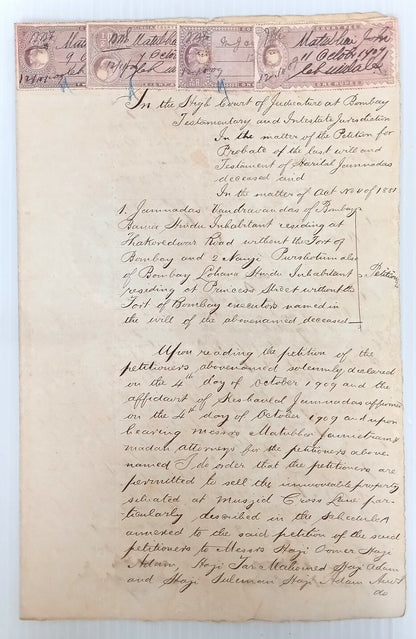 Matubhai
9 Octob
Matubhai
9 Octob
Matubhai Jam
11 Octob 1909
ONE RUPEE
In the High Court of Judicature at Bombay
Testamentary and Intestate Jurisdiction
In the matter of the Petition for
Probate of the last will and
Testament of Harilal Jamnadas
deceased and
In the matter of Act No V of 1881
1. Jamnadas Vandravandas of Bombay
Hindu Inhabitant residing at
Thakordwar Road without the Fort of
Bombay and 2 Nanji Purshotum also
of Bombay Lohana Hindu Inhabitant
residing at Princess Street without the
Fort of Bombay executors named in
the will of the abovenamed deceased
Petitioners
Upon reading the petition of the
petitioners abovenamed solemnly declared
on the 4th day of October 1909 and the
affidavit of Keshavlal Jamnadas affirmed
on the 4th day of October 1909 and upon
hearing Messrs Matubhai Jamietram &
Madan attorneys for the petitioners above-
named I do order that the petitioners are
permitted to sell the immoveable property
situated at Musjid Cross Lane par-
ticularly described in the schedule A
annexed to the said petition of the said
petitioners to Messrs Haji Oomer Haji
Adam, Haji Tar Mahomed Haji Adam
and Haji Suleman Haji Adam
do